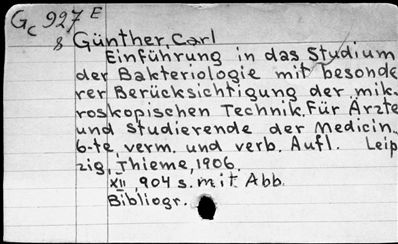 Gc 927 E
8
Günther, Carl
Einführung in das Studium
der Bakteriologie mit besonde
rer Berücksichtigung der mik-
roskopischen Technik. Für Ärzte
und Studierende der Medicin.
6-te, verm. und verb. Aufl. Leip
zig, Thieme, 1906.
XII, 904 s. mit Abb.
Bibliogr.